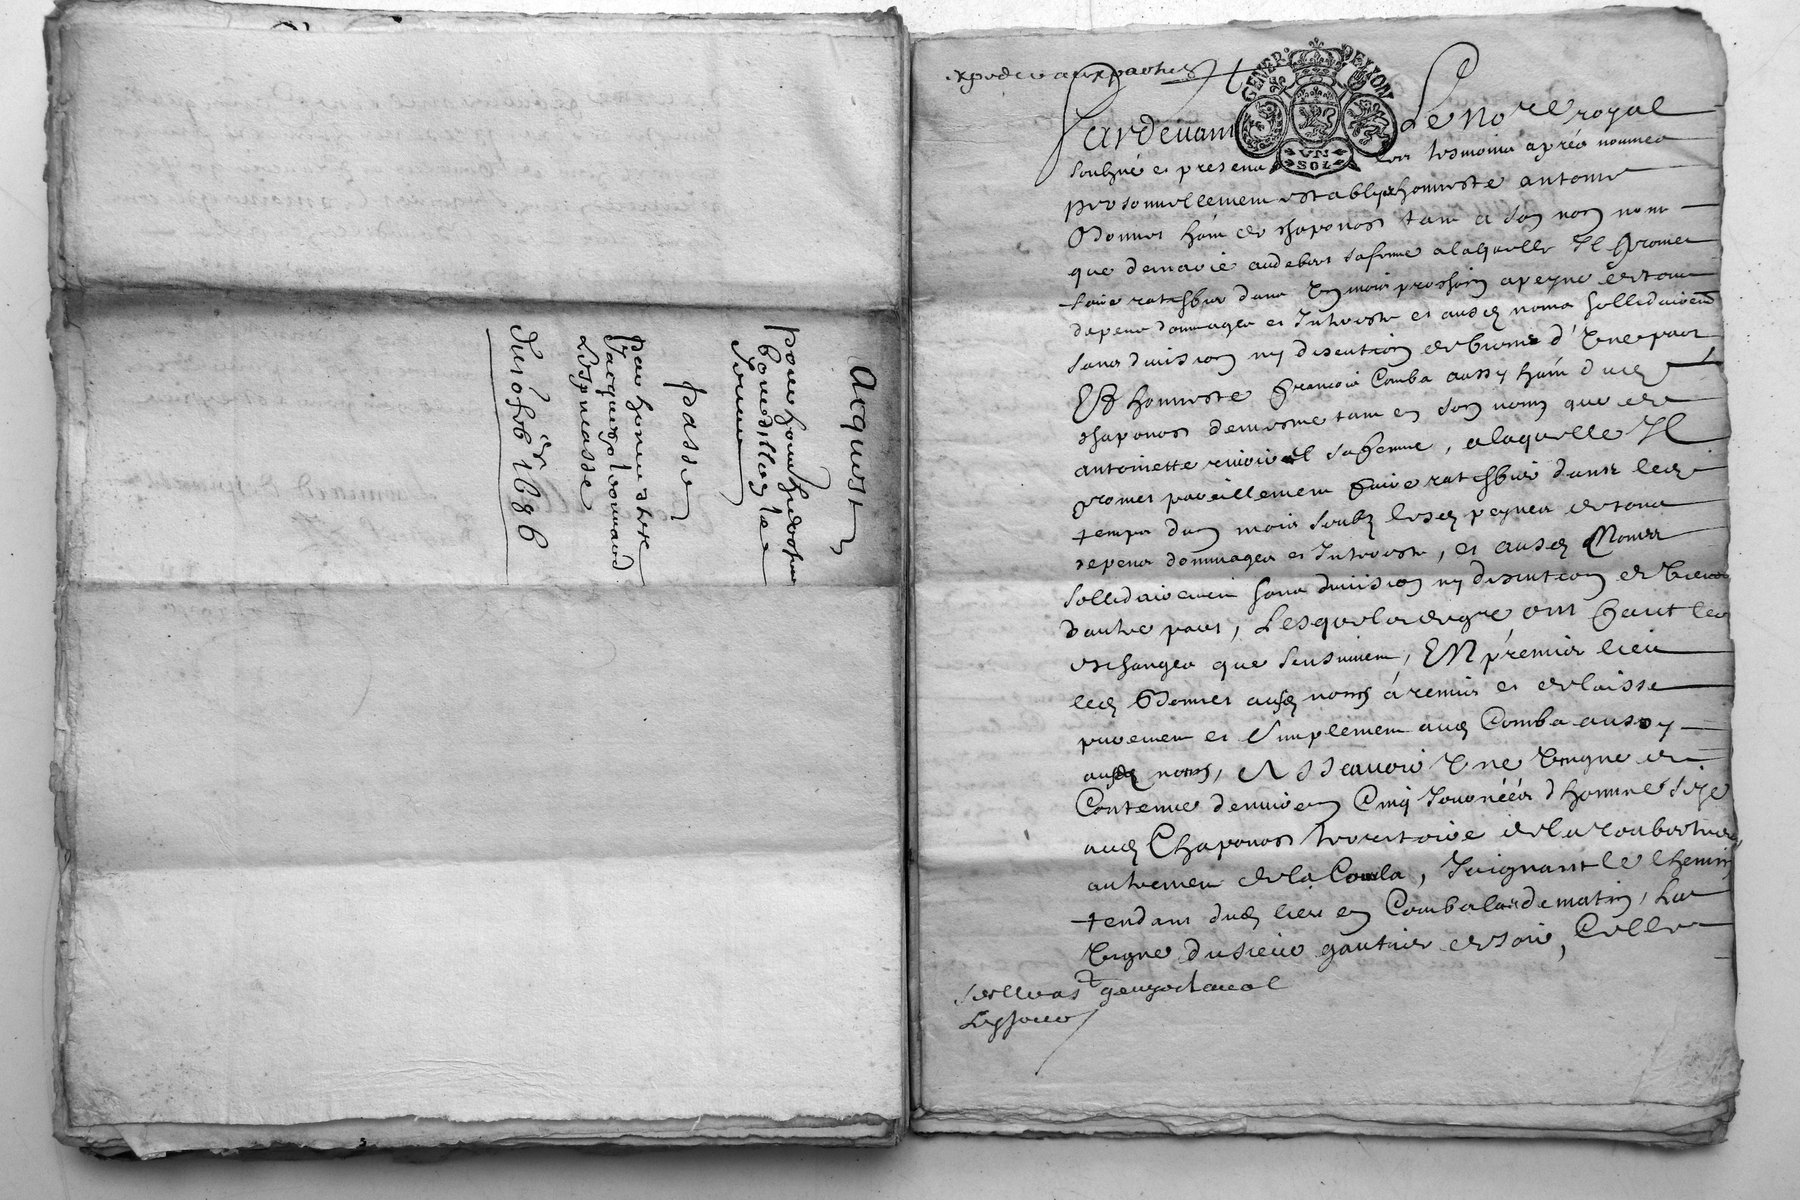 Acquest
pour
passé
par honneste
Jacques
du 10e 8bre 1686
expedié aux parties
GENER DE LYON
VN
SOL
Pardevant Le Nore royal
soubzné et presens les tesmoins aprés nommés
personnellement estably honneste antoine
Bonnet habt de chaponost tant a son nom
que de marie sa feme a laquelle Il promet
faire ratiffier dans Un mois prochain a peyne de tous
despens dommages et Interests et ausd noms sollidairemt
sans division ny discution de biens d'Une part
Et honneste françois Comba aussy habt dud
chaponost de mesme tant en son nom que de
antoinette sa femme, a laquelle Il
promet pareillement faire ratiffier dans led
temps dun mois soubz lesd peynes de tous
despens dommages et Interests, et ausd Noms
sollidairement sans division ny discution de biens
dautre part, Lesquels de gré ont fait les
eschanges que sensuivent, EN premier lieu
led Bonnet ausd noms à remis et delaissé
purement et simplement aud Comba aussy
ausd noms, A Scavoir Une Vigne de
Contenue denviron Cinq Journéés d'homme size
aud Chaponost territoire de la
autrement de la Comba, Joignant le chemin
tendant dud lieu en Combalard de matin, La
Vigne du sieur gautier de soir, Celle